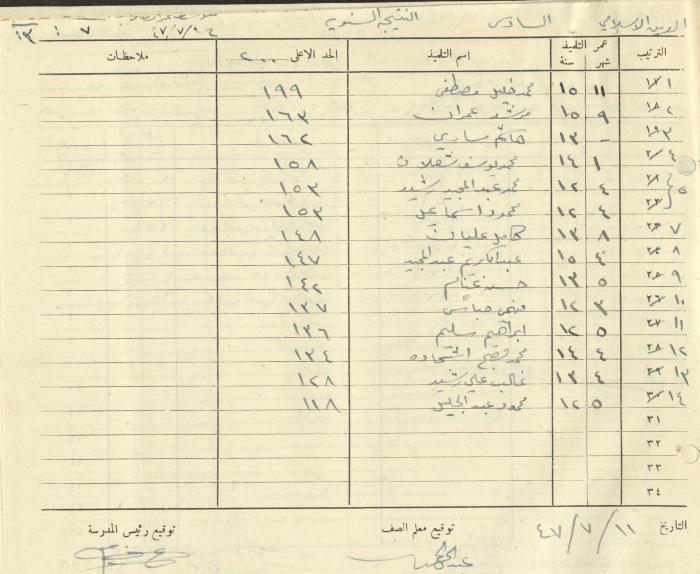 الدين الإسلامي السادس النتيجة السنوية
١٣ : ٧
الترتيب عمر التلميذ شهر سنة اسم التلميذ الحد الاعلى ٢٠٠ ملاحظات
١ ١١ ١٥ محمد خليل مصطفى ١٩٩
٢ ٩ ١٥ مرشد عمران ١٦٣
٣ - ١٣ هاشم ساري ١٦٢
٤ ١ ١٤ محمد يوسف شعلان ١٥٨
٥ ٤ ١٢ محمد عبد المجيد رشيد ١٥٣
٤ ١٢ محمود اسماعيل ١٥٣
٧ ٨ ١٣ كامل عليان ١٤٨
٨ ٤ ١٥ عبد الكريم عبد المجيد ١٤٧
٩ ٥ ١٣ حسن غنام ١٤٢
١٠ ٣ ١٢ عباس ١٣٧
١١ ٥ ١٢ ابراهيم سليم ١٣٦
١٢ ٤ ١٤ محمد ١٣٤
١٣ ٤ ١٣ غالب علي رشيد ١٢٨
١٤ ٥ ١٢ محمود عبد الجليل ١١٨
٣١
٣٢
٣٣
٣٤
التاريخ ١١/٧/٤٧ توقيع معلم الصف توقيع رئيس المدرسة